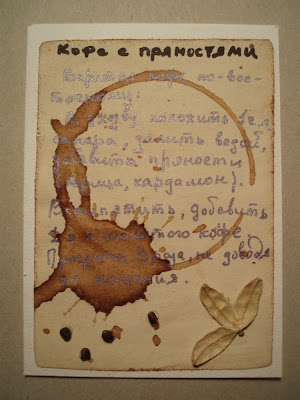 Кофе с пряностями
Варится кофе по-вос-
точному:
В джезву положить 1 ч.л.
сахара, залить водой,
добавить пряности
(корица, кардамон).
Вскипятить, добавить
2 ч.л. молотого кофе,
Прогреть 3 раза, не доводя
до кипения.